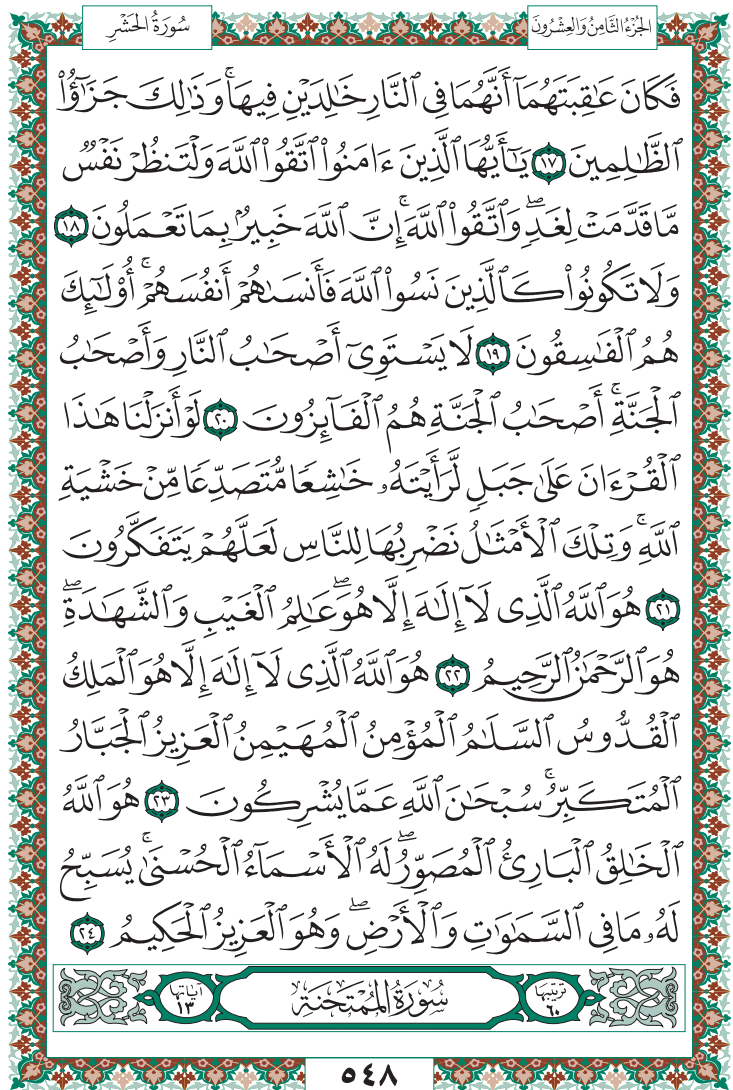 الجُزْءُ الثَّامِنُ وَالعِشْرُونَ
سُورَةُ الحَشْرِ
فَكَانَ عَٰقِبَتَهُمَآ أَنَّهُمَا فِى ٱلنَّارِ خَٰلِدَيْنِ فِيهَا ۚ وَذَٰلِكَ جَزَٰٓؤُا۟
ٱلظَّٰلِمِينَ ١٧ يَٰٓأَيُّهَا ٱلَّذِينَ ءَامَنُوا۟ ٱتَّقُوا۟ ٱللَّهَ وَلْتَنظُرْ نَفْسٌ
مَّا قَدَّمَتْ لِغَدٍ ۖ وَٱتَّقُوا۟ ٱللَّهَ ۚ إِنَّ ٱللَّهَ خَبِيرٌۢ بِمَا تَعْمَلُونَ ١٨
وَلَا تَكُونُوا۟ كَٱلَّذِينَ نَسُوا۟ ٱللَّهَ فَأَنسَىٰهُمْ أَنفُسَهُمْ ۚ أُو۟لَٰٓئِكَ
هُمُ ٱلْفَٰسِقُونَ ١٩ لَا يَسْتَوِىٓ أَصْحَٰبُ ٱلنَّارِ وَأَصْحَٰبُ
ٱلْجَنَّةِ ۚ أَصْحَٰبُ ٱلْجَنَّةِ هُمُ ٱلْفَآئِزُونَ ٢٠ لَوْ أَنزَلْنَا هَٰذَا
ٱلْقُرْءَانَ عَلَىٰ جَبَلٍ لَّرَأَيْتَهُۥ خَٰشِعًا مُّتَصَدِّعًا مِّنْ خَشْيَةِ
ٱللَّهِ ۚ وَتِلْكَ ٱلْأَمْثَٰلُ نَضْرِبُهَا لِلنَّاسِ لَعَلَّهُمْ يَتَفَكَّرُونَ
٢١ هُوَ ٱللَّهُ ٱلَّذِى لَآ إِلَٰهَ إِلَّا هُوَ ۖ عَٰلِمُ ٱلْغَيْبِ وَٱلشَّهَٰدَةِ ۖ
هُوَ ٱلرَّحْمَٰنُ ٱلرَّحِيمُ ٢٢ هُوَ ٱللَّهُ ٱلَّذِى لَآ إِلَٰهَ إِلَّا هُوَ ٱلْمَلِكُ
ٱلْقُدُّوسُ ٱلسَّلَٰمُ ٱلْمُؤْمِنُ ٱلْمُهَيْمِنُ ٱلْعَزِيزُ ٱلْجَبَّارُ
ٱلْمُتَكَبِّرُ ۚ سُبْحَٰنَ ٱللَّهِ عَمَّا يُشْرِكُونَ ٢٣ هُوَ ٱللَّهُ
ٱلْخَٰلِقُ ٱلْبَارِئُ ٱلْمُصَوِّرُ ۖ لَهُ ٱلْأَسْمَآءُ ٱلْحُسْنَىٰ ۚ يُسَبِّحُ
لَهُۥ مَا فِى ٱلسَّمَٰوَٰتِ وَٱلْأَرْضِ ۖ وَهُوَ ٱلْعَزِيزُ ٱلْحَكِيمُ ٢٤
ترتيبها ٦٠ سُورَةُ المُمْتَحنَة آياتها ١٣
٥٤٨